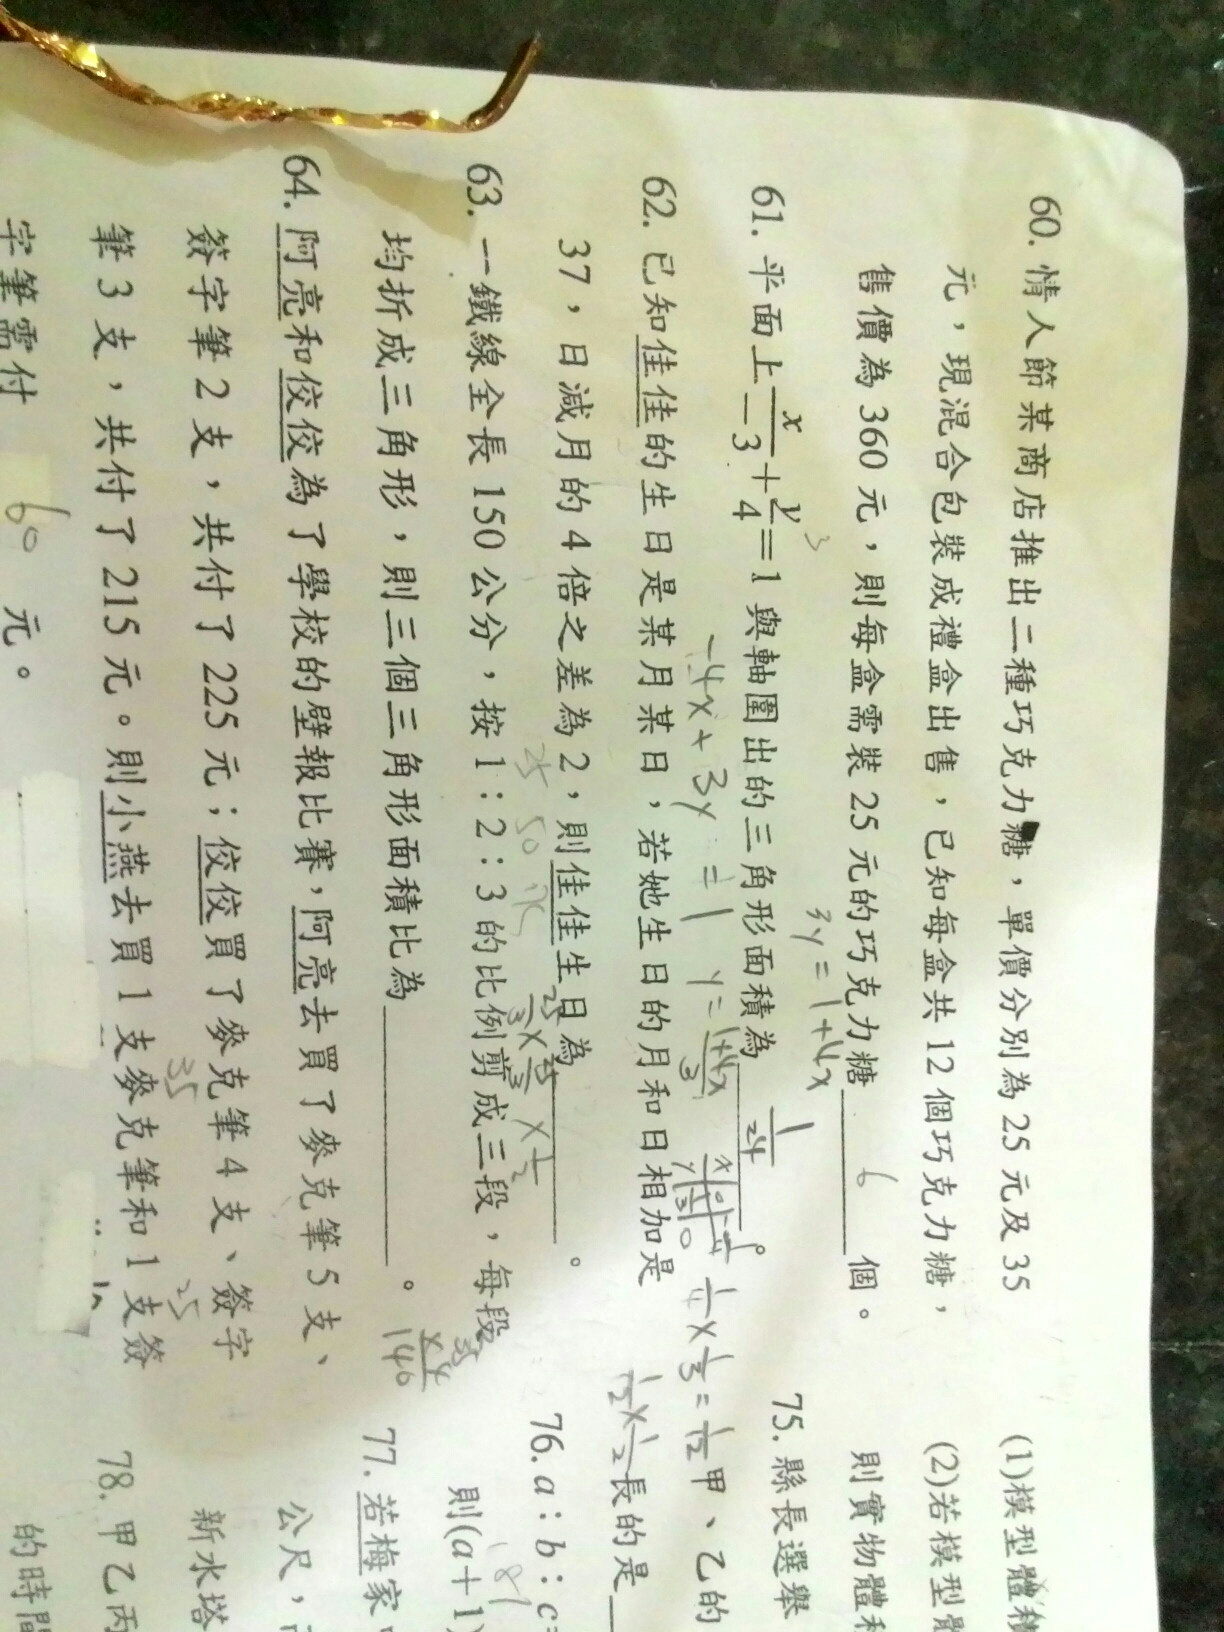 60. 情人節某商店推出二種巧克力糖，單價分別為 25 元及 35
元，現混合包裝成禮盒出售，已知每盒共 12 個巧克力糖，
售價為 360 元，則每盒需裝 25 元的巧克力糖 6 個。
3y=1+4x
61. 平面上 x/-3 + y/4 = 1 與軸圍出的三角形面積為 1/24 。
-4x+3y=1 y=(1+4x)/3
1/4×1/3=1/12
1/12×1/2
62. 已知佳佳的生日是某月某日，若她生日的月和日相加是
37，日減月的 4 倍之差為 2，則佳佳生日為 。
25 50
63. 一鐵線全長 150 公分，按 1：2：3 的比例剪成三段，每段
均折成三角形，則三個三角形面積比為 。
35
×4
140
64. 阿亮和佼佼為了學校的壁報比賽，阿亮去買了麥克筆 5 支、
簽字筆 2 支，共付了 225 元；佼佼買了麥克筆 4 支、簽字
35 25
筆 3 支，共付了 215 元。則小燕去買 1 支麥克筆和 1 支簽
字筆需付 60 元。
(1)模型體積
(2)若模型體
則實物體積
75. 縣長選舉
甲、乙的
長的是
76. a：b：c=
則(a+1)
77. 若梅家
公尺，
新水塔
78. 甲乙丙
的時間